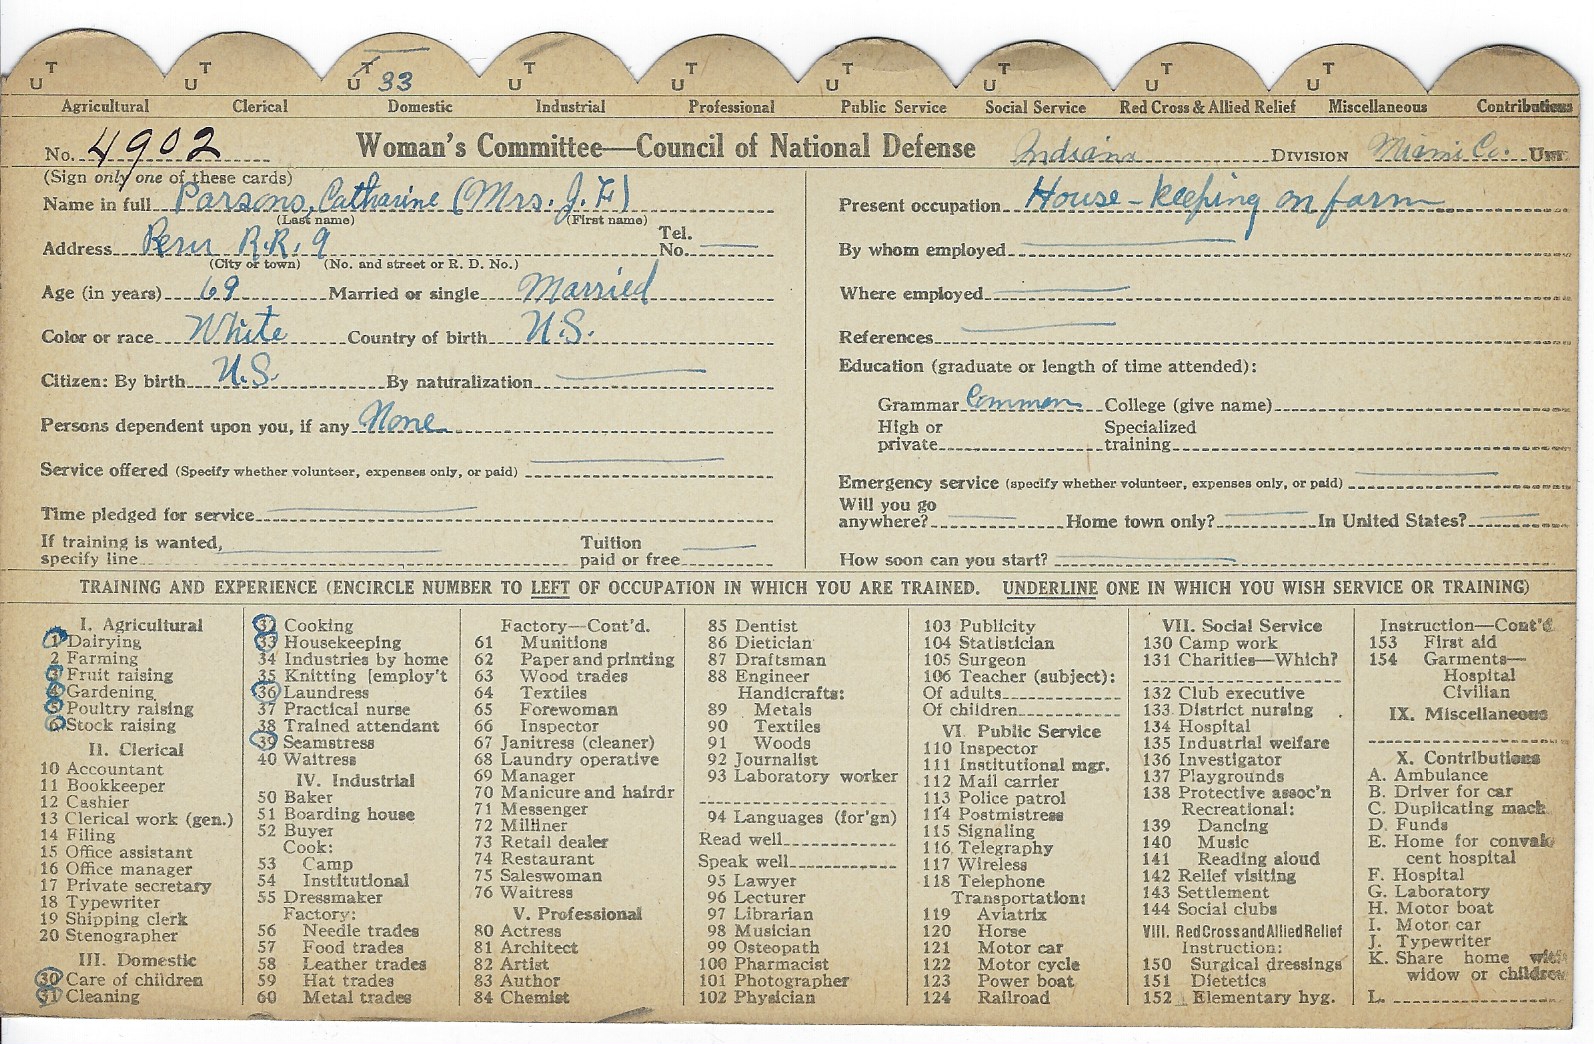 T T T T T T T T T
U U U 33 U U U U U U
Agricultural Clerical Domestic Industrial Professional Public Service Social Service Red Cross & Allied Relief Miscellaneous Contributions
No. 4902 Woman's Committee—Council of National Defense Indiana DIVISION Miami Co. UNIT
(Sign only one of these cards)
Name in full Parsons, Catharine (Mrs. J. F.)
(Last name) (First name)
Address Peru R.R. 9 Tel. No.
(City or town) (No. and street or R. D. No.)
Age (in years) 69 Married or single Married
Color or race White Country of birth U.S.
Citizen: By birth U.S. By naturalization
Persons dependent upon you, if any None
Service offered (Specify whether volunteer, expenses only, or paid)
Time pledged for service
If training is wanted, specify line Tuition paid or free
Present occupation House-keeping on farm
By whom employed
Where employed
References
Education (graduate or length of time attended):
Grammar Common College (give name)
High or private Specialized training
Emergency service (specify whether volunteer, expenses only, or paid)
Will you go anywhere? Home town only? In United States?
How soon can you start?
TRAINING AND EXPERIENCE (ENCIRCLE NUMBER TO LEFT OF OCCUPATION IN WHICH YOU ARE TRAINED. UNDERLINE ONE IN WHICH YOU WISH SERVICE OR TRAINING)
I. Agricultural
1 Dairying
2 Farming
3 Fruit raising
4 Gardening
5 Poultry raising
6 Stock raising
II. Clerical
10 Accountant
11 Bookkeeper
12 Cashier
13 Clerical work (gen.)
14 Filing
15 Office assistant
16 Office manager
17 Private secretary
18 Typewriter
19 Shipping clerk
20 Stenographer
III. Domestic
30 Care of children
31 Cleaning
32 Cooking
33 Housekeeping
34 Industries by home
35 Knitting [employ't
36 Laundress
37 Practical nurse
38 Trained attendant
39 Seamstress
40 Waitress
IV. Industrial
50 Baker
51 Boarding house
52 Buyer
Cook:
53 Camp
54 Institutional
55 Dressmaker
Factory:
56 Needle trades
57 Food trades
58 Leather trades
59 Hat trades
60 Metal trades
Factory—Cont'd.
61 Munitions
62 Paper and printing
63 Wood trades
64 Textiles
65 Forewoman
66 Inspector
67 Janitress (cleaner)
68 Laundry operative
69 Manager
70 Manicure and hairdr
71 Messenger
72 Milliner
73 Retail dealer
74 Restaurant
75 Saleswoman
76 Waitress
V. Professional
80 Actress
81 Architect
82 Artist
83 Author
84 Chemist
85 Dentist
86 Dietician
87 Draftsman
88 Engineer
Handicrafts:
89 Metals
90 Textiles
91 Woods
92 Journalist
93 Laboratory worker
94 Languages (for'gn)
Read well
Speak well
95 Lawyer
96 Lecturer
97 Librarian
98 Musician
99 Osteopath
100 Pharmacist
101 Photographer
102 Physician
103 Publicity
104 Statistician
105 Surgeon
106 Teacher (subject):
Of adults
Of children
VI. Public Service
110 Inspector
111 Institutional mgr.
112 Mail carrier
113 Police patrol
114 Postmistress
115 Signaling
116 Telegraphy
117 Wireless
118 Telephone
Transportation:
119 Aviatrix
120 Horse
121 Motor car
122 Motor cycle
123 Power boat
124 Railroad
VII. Social Service
130 Camp work
131 Charities—Which?
132 Club executive
133 District nursing
134 Hospital
135 Industrial welfare
136 Investigator
137 Playgrounds
138 Protective assoc'n
Recreational:
139 Dancing
140 Music
141 Reading aloud
142 Relief visiting
143 Settlement
144 Social clubs
VIII. Red Cross and Allied Relief
Instruction:
150 Surgical dressings
151 Dietetics
152 Elementary hyg.
Instruction—Cont'd
153 First aid
154 Garments—
Hospital
Civilian
IX. Miscellaneous
X. Contributions
A. Ambulance
B. Driver for car
C. Duplicating mach
D. Funds
E. Home for conval
cent hospital
F. Hospital
G. Laboratory
H. Motor boat
I. Motor car
J. Typewriter
K. Share home with
widow or children
L.